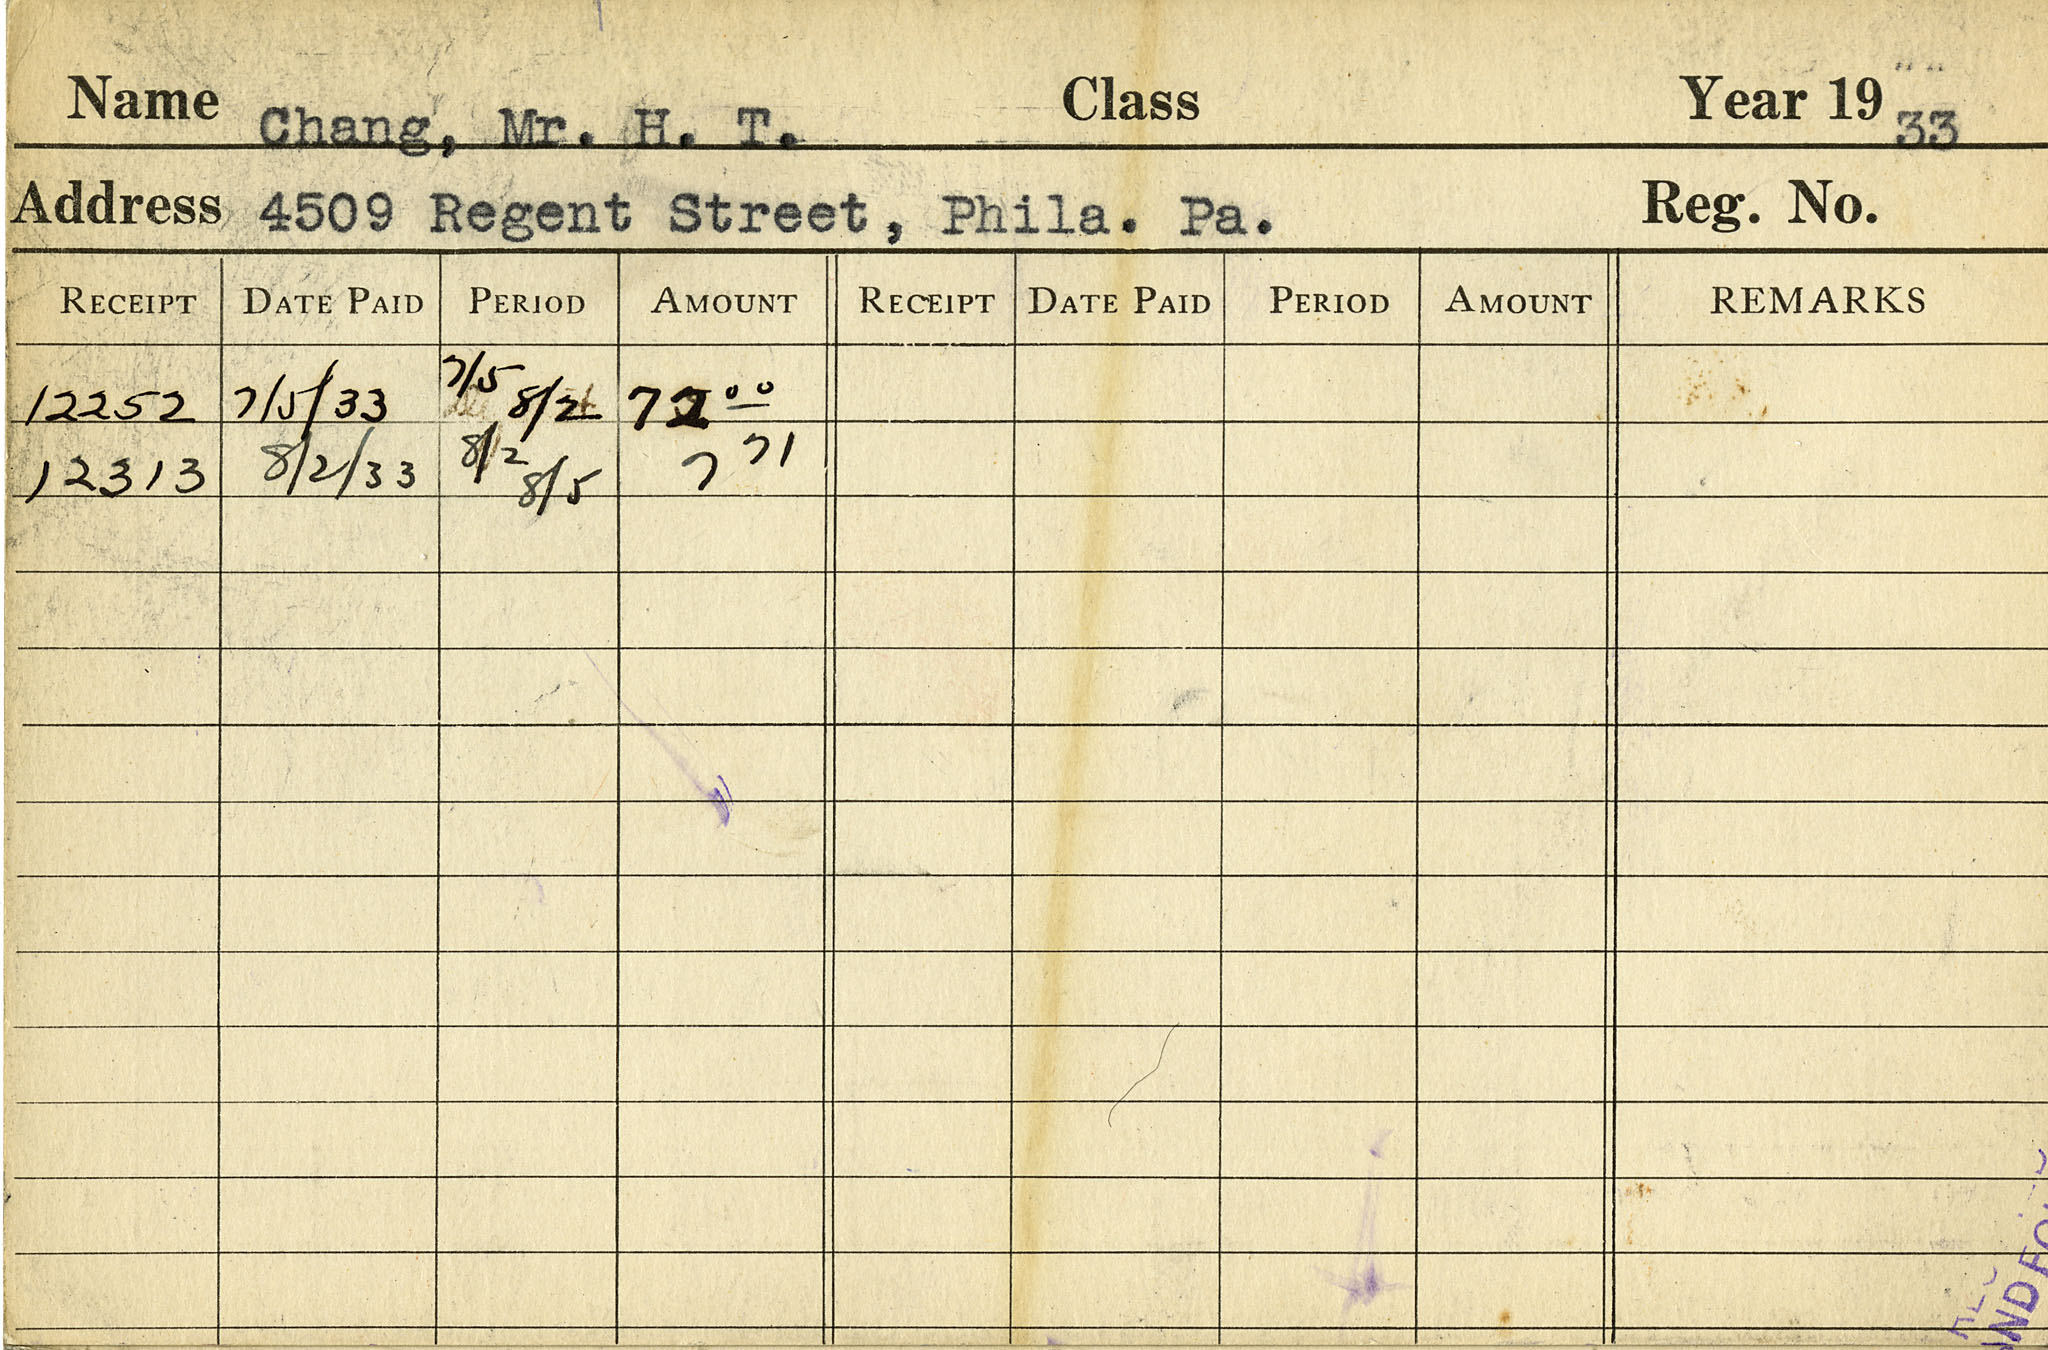 Name Chang, Mr. H. T. Class Year 19 33
Address 4509 Regent Street, Phila. Pa. Reg. No.
RECEIPT DATE PAID PERIOD AMOUNT RECEIPT DATE PAID PERIOD AMOUNT REMARKS
12252 7/5/33 7/5 8/2 72 00
12313 8/2/33 8/2 8/5 7 71